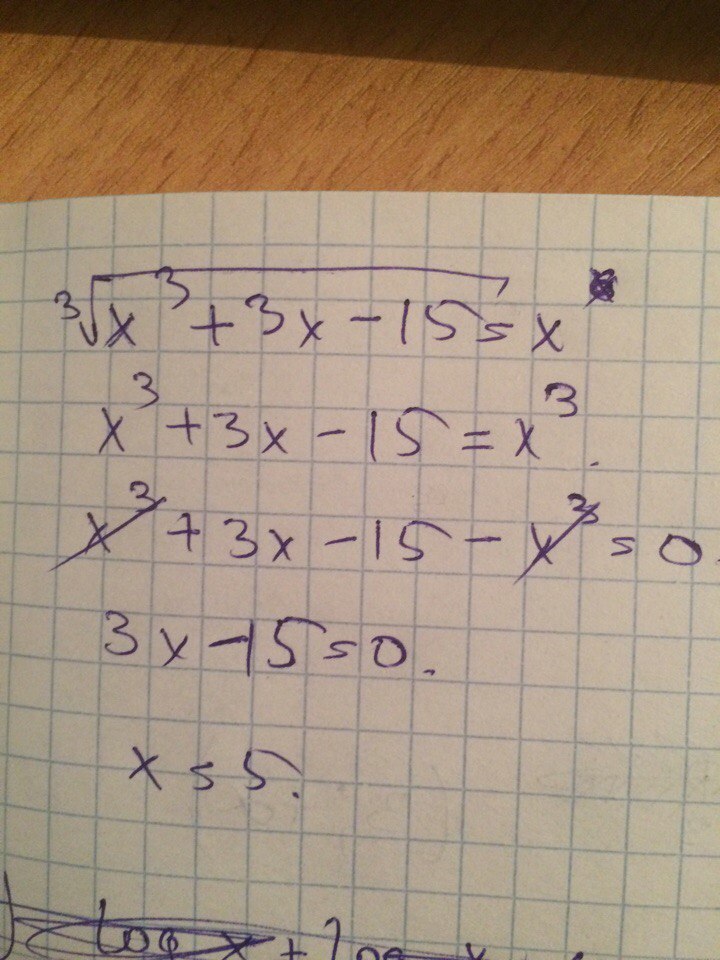 ∛(x³ + 3x - 15) = x
x³ + 3x - 15 = x³.
x³ + 3x - 15 - x³ = 0.
3x - 15 = 0.
x = 5.
log x + log x